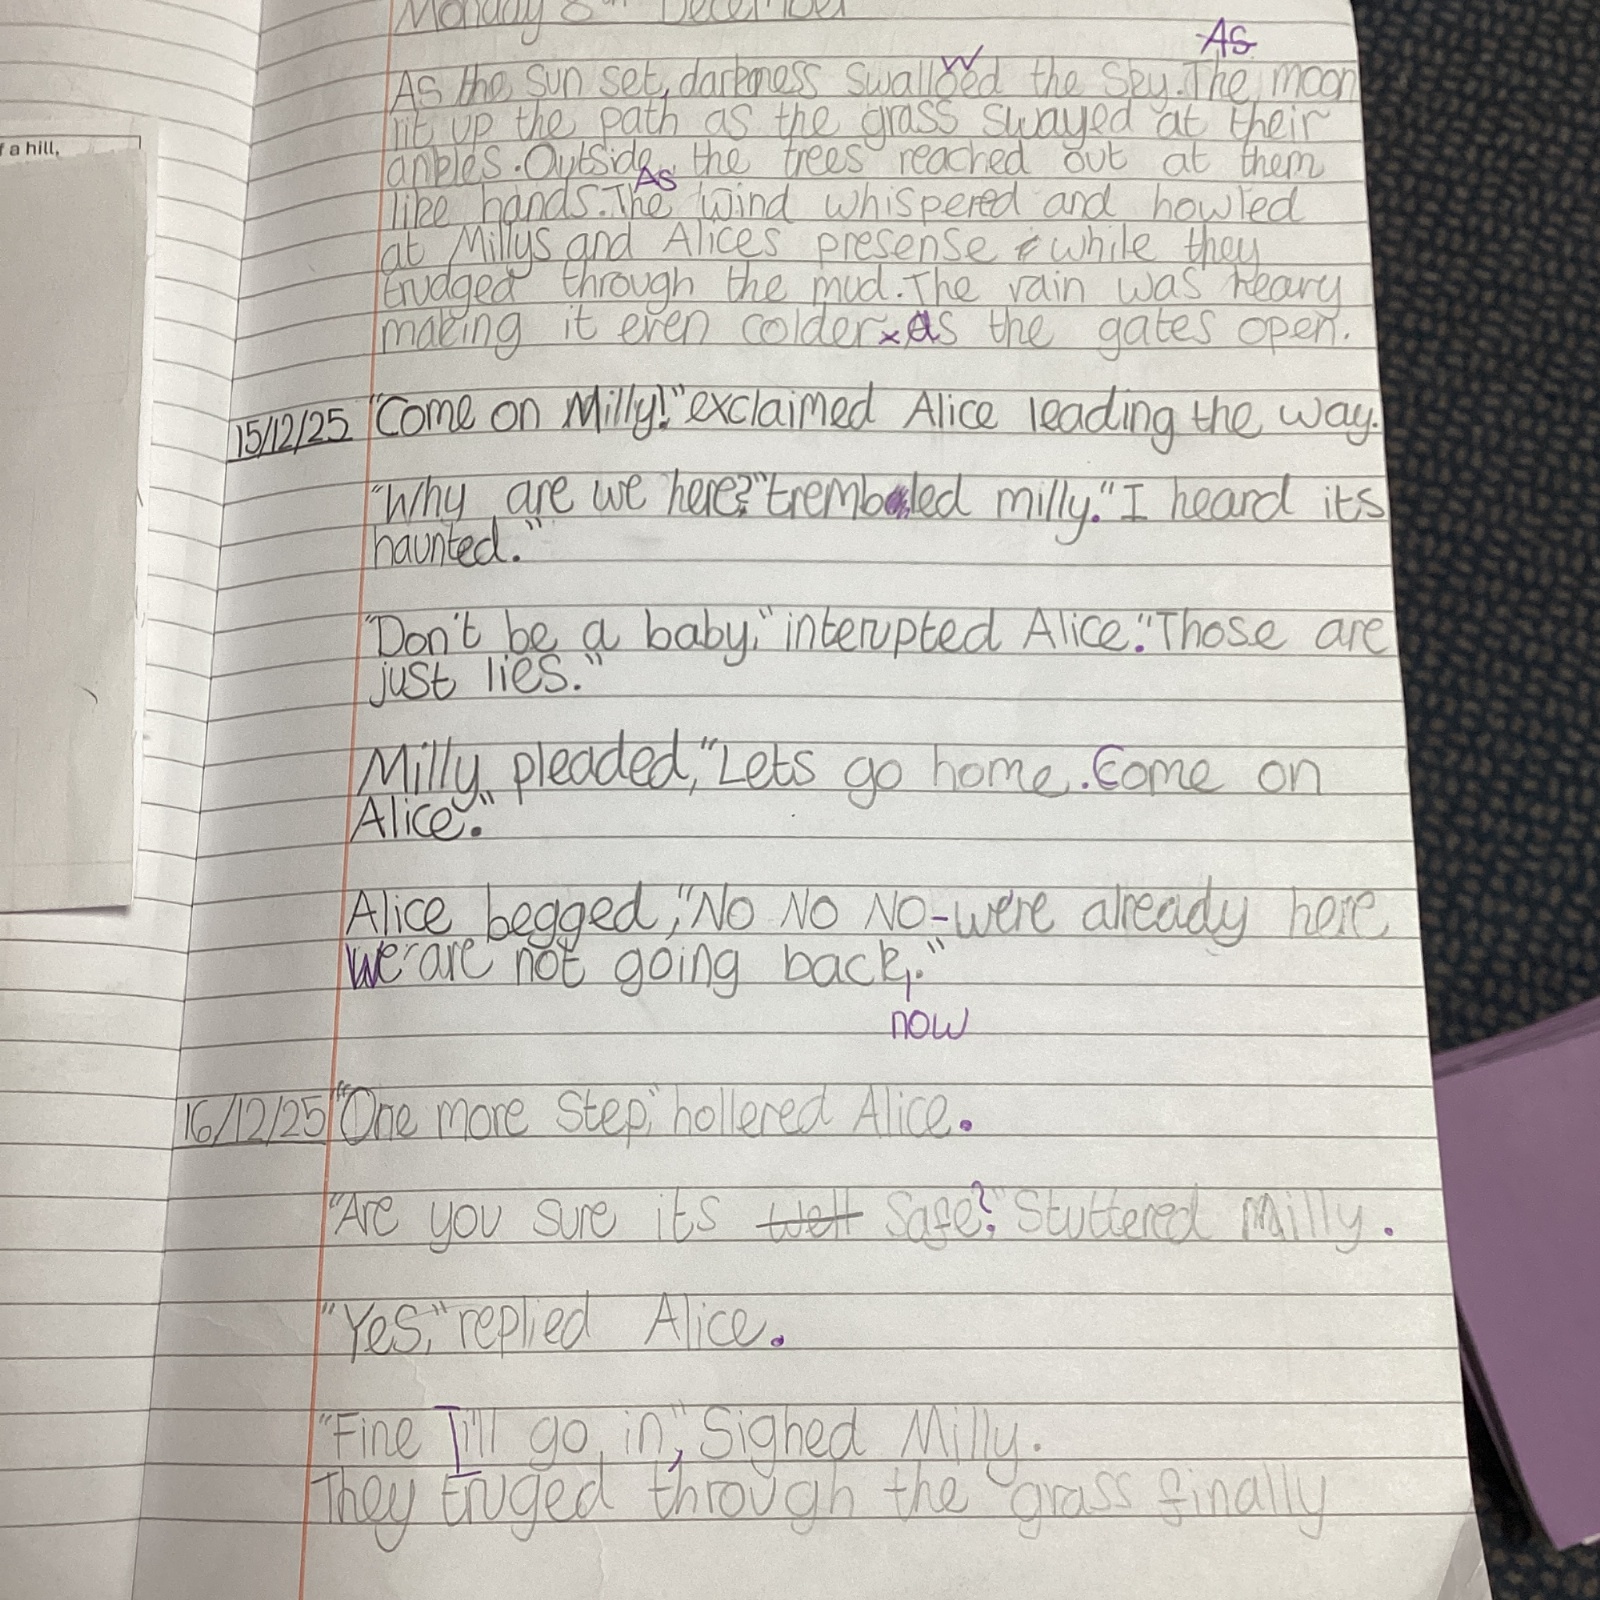 Monday 8th December
As
As the sun set, darkness swallowed the sky. The moon
lit up the path as the grass swayed at their
ankles. Outside, the trees reached out at them
As
like hands. The wind whispered and howled
at Millys and Alices presense while they
trudged through the mud. The rain was heavy
making it even colder as the gates open.
15/12/25 "Come on Milly!" exclaimed Alice leading the way.
"Why are we here?" trembled milly. "I heard its
haunted."
"Don't be a baby," interupted Alice. "Those are
just lies."
Milly pleaded, "Lets go home. Come on
Alice."
Alice begged, "No No No-were already here
we are not going back,."
now
16/12/25 "One more step," hollered Alice.
"Are you sure its well safe?" Stuttered Milly.
"Yes," replied Alice.
"Fine I'll go in", Sighed Milly.
They truged through the grass finally
f a hill,